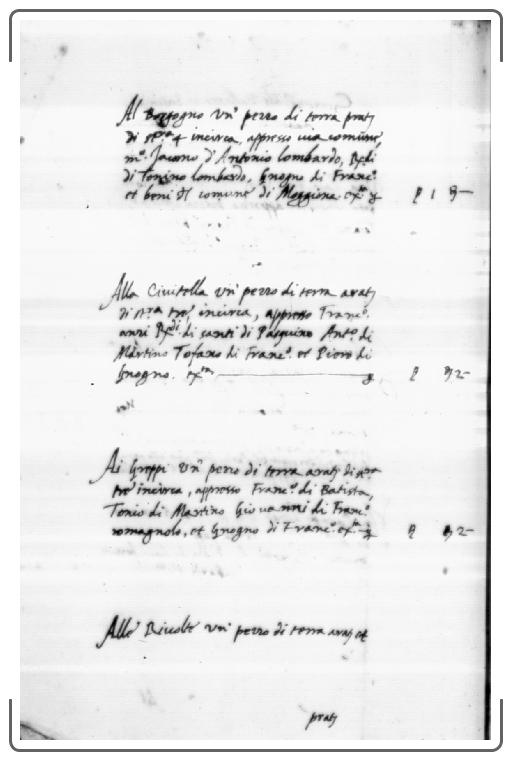 Al Borgogno un' pezzo di terra prati
di st.ra 4 incirca, appresso via comune,
m.o Jacomo d'Antonio lombardo, Redi
di Tonino lombardo, Gnogno di Franc.o
et beni d'l comune di Moggiona
Alla Civitella un' pezzo di terra arati
di st.ra tre, incirca, appresso Franc.o
Redi di santi di Pasquino Ant.o di
Martino Tofano di Franc.o et Piero di
Gnogno.
Ai Greppi un' pezzo di terra arati di st.ra
tre incirca, appresso Franc.o di Batista,
Tonio di Martino Giovanni di Franc.o
romagnolo, et Gnogno di Franc.o
Alle Rivolte un' pezzo di terra arati et
prati